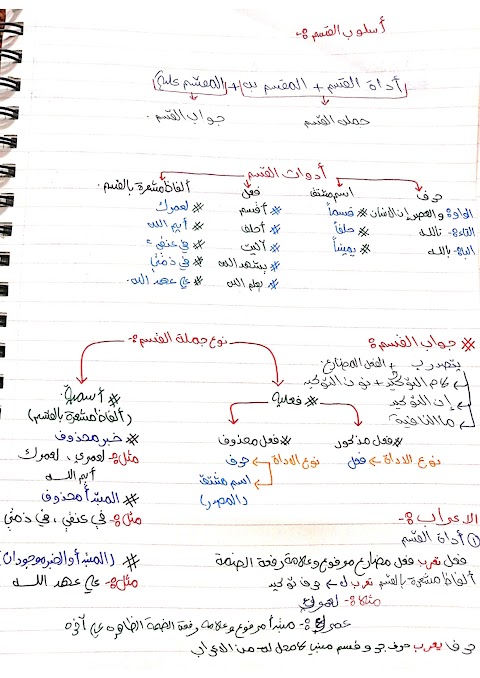 أسلوب القسم :-
أداة القسم + المقسم به + (المقسم عليه)
جملة القسم جواب القسم.
أدوات القسم
حرف اسم مشتق فعل ألفاظ مشعرة بالقسم.
الواو :- والعصر إن الإنسان # قسماً # أقسم # لعمرك
التاء :- تالله # حلفاً # أحلف # أيم الله
الباء :- بالله # يميناً # آليت # في عنقي
# يشهد الله # في ذمتي
# يعلم الله # علي عهد الله.
# جواب القسم :-
يتصدر بـ + الفعل المضارع.
لام التوكيد + نون التوكيد
إن التوكيد
ما النافية.
نوع جملة القسم :-
# فعلية
# فعل مذكور # فعل محذوف
نوع الأداة فعل نوع الأداة حرف
اسم مشتق
(المصدر)
# أسمية.
(ألفاظ مشعرة بالقسم)
# خبر محذوف
مثل :- لعمري ، لعمرك
أيم الله
# المبتدأ محذوف
مثل :- في عنقي ، في ذمتي
# (المبتدأ والخبر موجودان)
مثل :- علي عهد الله
الاعراب :-
① أداة القسم
فعل تعرب فعل مضارع مرفوع وعلامة رفعة الضمة
ألفاظ مشعرة بالقسم تعرب ل حرف توكيد
مثلاً :- لعمرك
عمرك :- مبتدأ مرفوع وعلامة رفعة الضمة الظاهره على آخره
حرف يعرب حرف جر و قسم مبني لا محل له من الاعراب